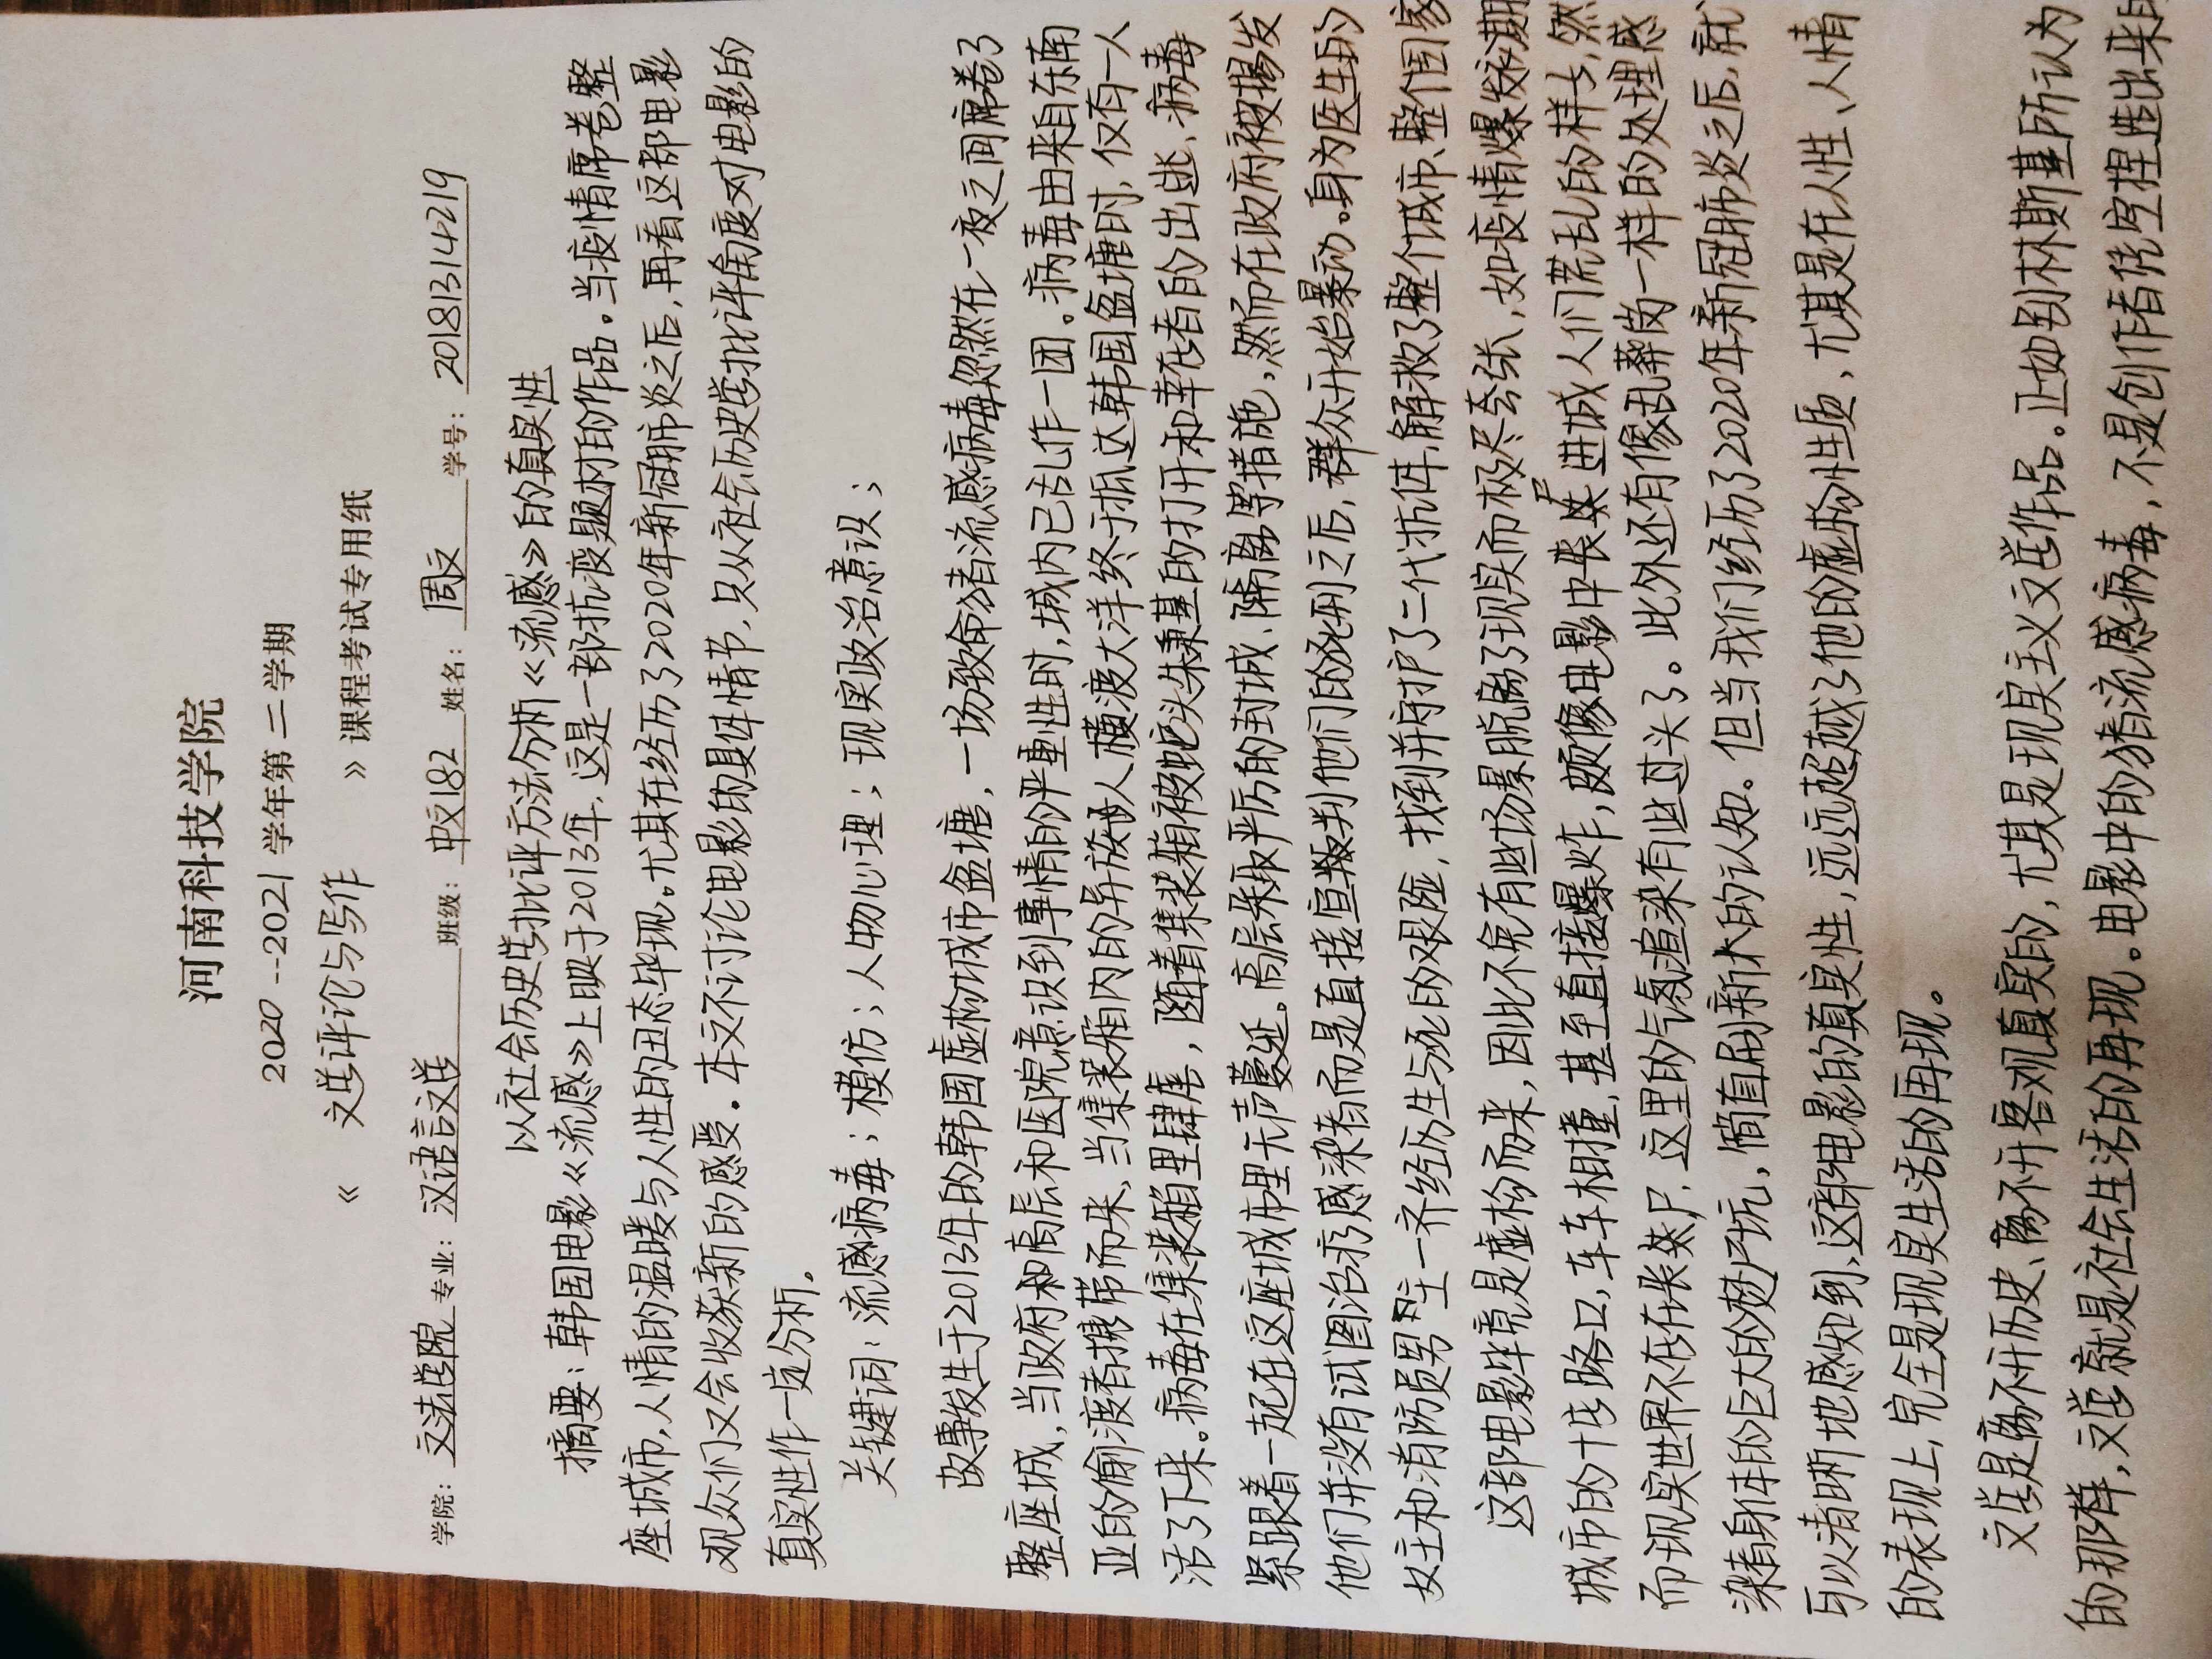 河南科技学院
2020--2021 学年第 二 学期
《 文学评论与写作 》课程考试专用纸
学院：文法学院 专业：汉语言文学 班级：中文182 姓名：周文 学号：20181314219
以社会历史学批评方法分析《流感》的真实性
摘要：韩国电影《流感》上映于2013年，这是一部抗疫题材的作品。当疫情席卷整
座城市，人情的温暖与人性的丑态毕现。尤其在经历了2020年新冠肺炎之后，再看这部电影
观众们又会收获新的感受。本文不讨论电影的具体情节，只从社会历史学批评角度对电影的
真实性作一定分析。
关键词：流感病毒；模仿；人物心理；现实政治意识；
故事发生于2013年的韩国虚构城市盆塘，一场致命猪流感病毒忽然在一夜之间席卷了
整座城，当政府和高层和医院意识到事情的严重性时，城内已乱作一团。病毒由来自东南
亚的偷渡者携带而来，当集装箱内的异族人横渡大洋终于抵达韩国盆塘时，仅有一人
活了下来。病毒在集装箱里肆虐，随着集装箱被蛇头朱秉基的打开和幸存者的出逃、病毒
紧跟着一起在这座城市里无声蔓延。高层采取严厉的封城、隔离等措施，然而在政府被揭发
他们并没有试图治疗感染者而是直接宣判他们的死刑之后，群众开始暴动。身为医生的
女主和消防员男主一齐经历生与死的艰险，找到并守护了二代抗体，解救了整个城市、整个国家
这部电影毕竟是虚构而来，因此不免有些场景脱离了现实而极尽夸张，如疫情爆发初期
城市的十字路口，车车相撞，甚至直接爆炸，颇像电影中丧尸进城人们荒乱的样子，然
而现实世界不存在丧尸，这里的气氛渲染有些过头了。此外还有像乱葬岗一样的处理感
染者身体的巨大的焚尸坑，简直刷新人的认知。但当我们经历了2020年新冠肺炎之后，就
可以清晰地感知到，这部电影的真实性，远远超越了他的虚构性质，尤其是在人性、人情
的表现上，完全是现实生活的再现。
文学是离不开历史、离不开客观真实的，尤其是现实主义文学作品。正如别林斯基所认为
的那样，文学就是社会生活的再现。电影中的猪流感病毒，不是创作者凭空捏造出来的